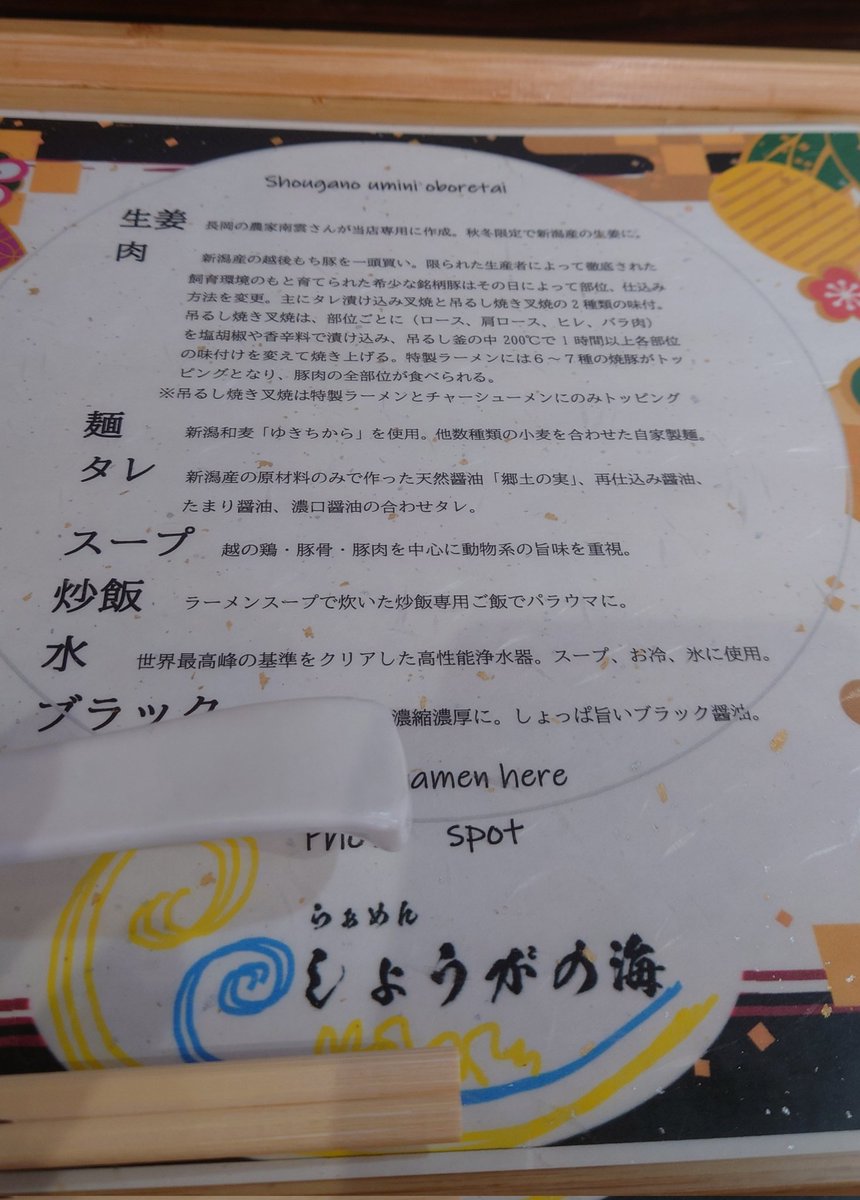 Shougano umini oboretai
生姜 長岡の農家南雲さんが当店専用に作成。秋冬限定で新潟産の生姜に。
肉 新潟産の越後もち豚を一頭買い。限られた生産者によって徹底された
飼育環境のもと育てられた希少な銘柄豚はその日によって部位、仕込み
方法を変更。主にタレ漬け込み叉焼と吊るし焼き叉焼の2種類の味付。
吊るし焼き叉焼は、部位ごとに（ロース、肩ロース、ヒレ、バラ肉）
を塩胡椒や香辛料で漬け込み、吊るし釜の中200℃で1時間以上各部位
の味付けを変えて焼き上げる。特製ラーメンには6～7種の焼豚がトッ
ピングとなり、豚肉の全部位が食べられる。
※吊るし焼き叉焼は特製ラーメンとチャーシューメンにのみトッピング
麺 新潟和麦「ゆきちから」を使用。他数種類の小麦を合わせた自家製麺。
タレ 新潟産の原材料のみで作った天然醤油「郷土の実」、再仕込み醤油、
たまり醤油、濃口醤油の合わせタレ。
スープ 越の鶏・豚骨・豚肉を中心に動物系の旨味を重視。
炒飯 ラーメンスープで炊いた炒飯専用ご飯でパラウマに。
水 世界最高峰の基準をクリアした高性能浄水器。スープ、お冷、氷に使用。
ブラック 濃縮濃厚に。しょっぱ旨いブラック醤油。
amen here
spot
らぁめん
しょうがの海